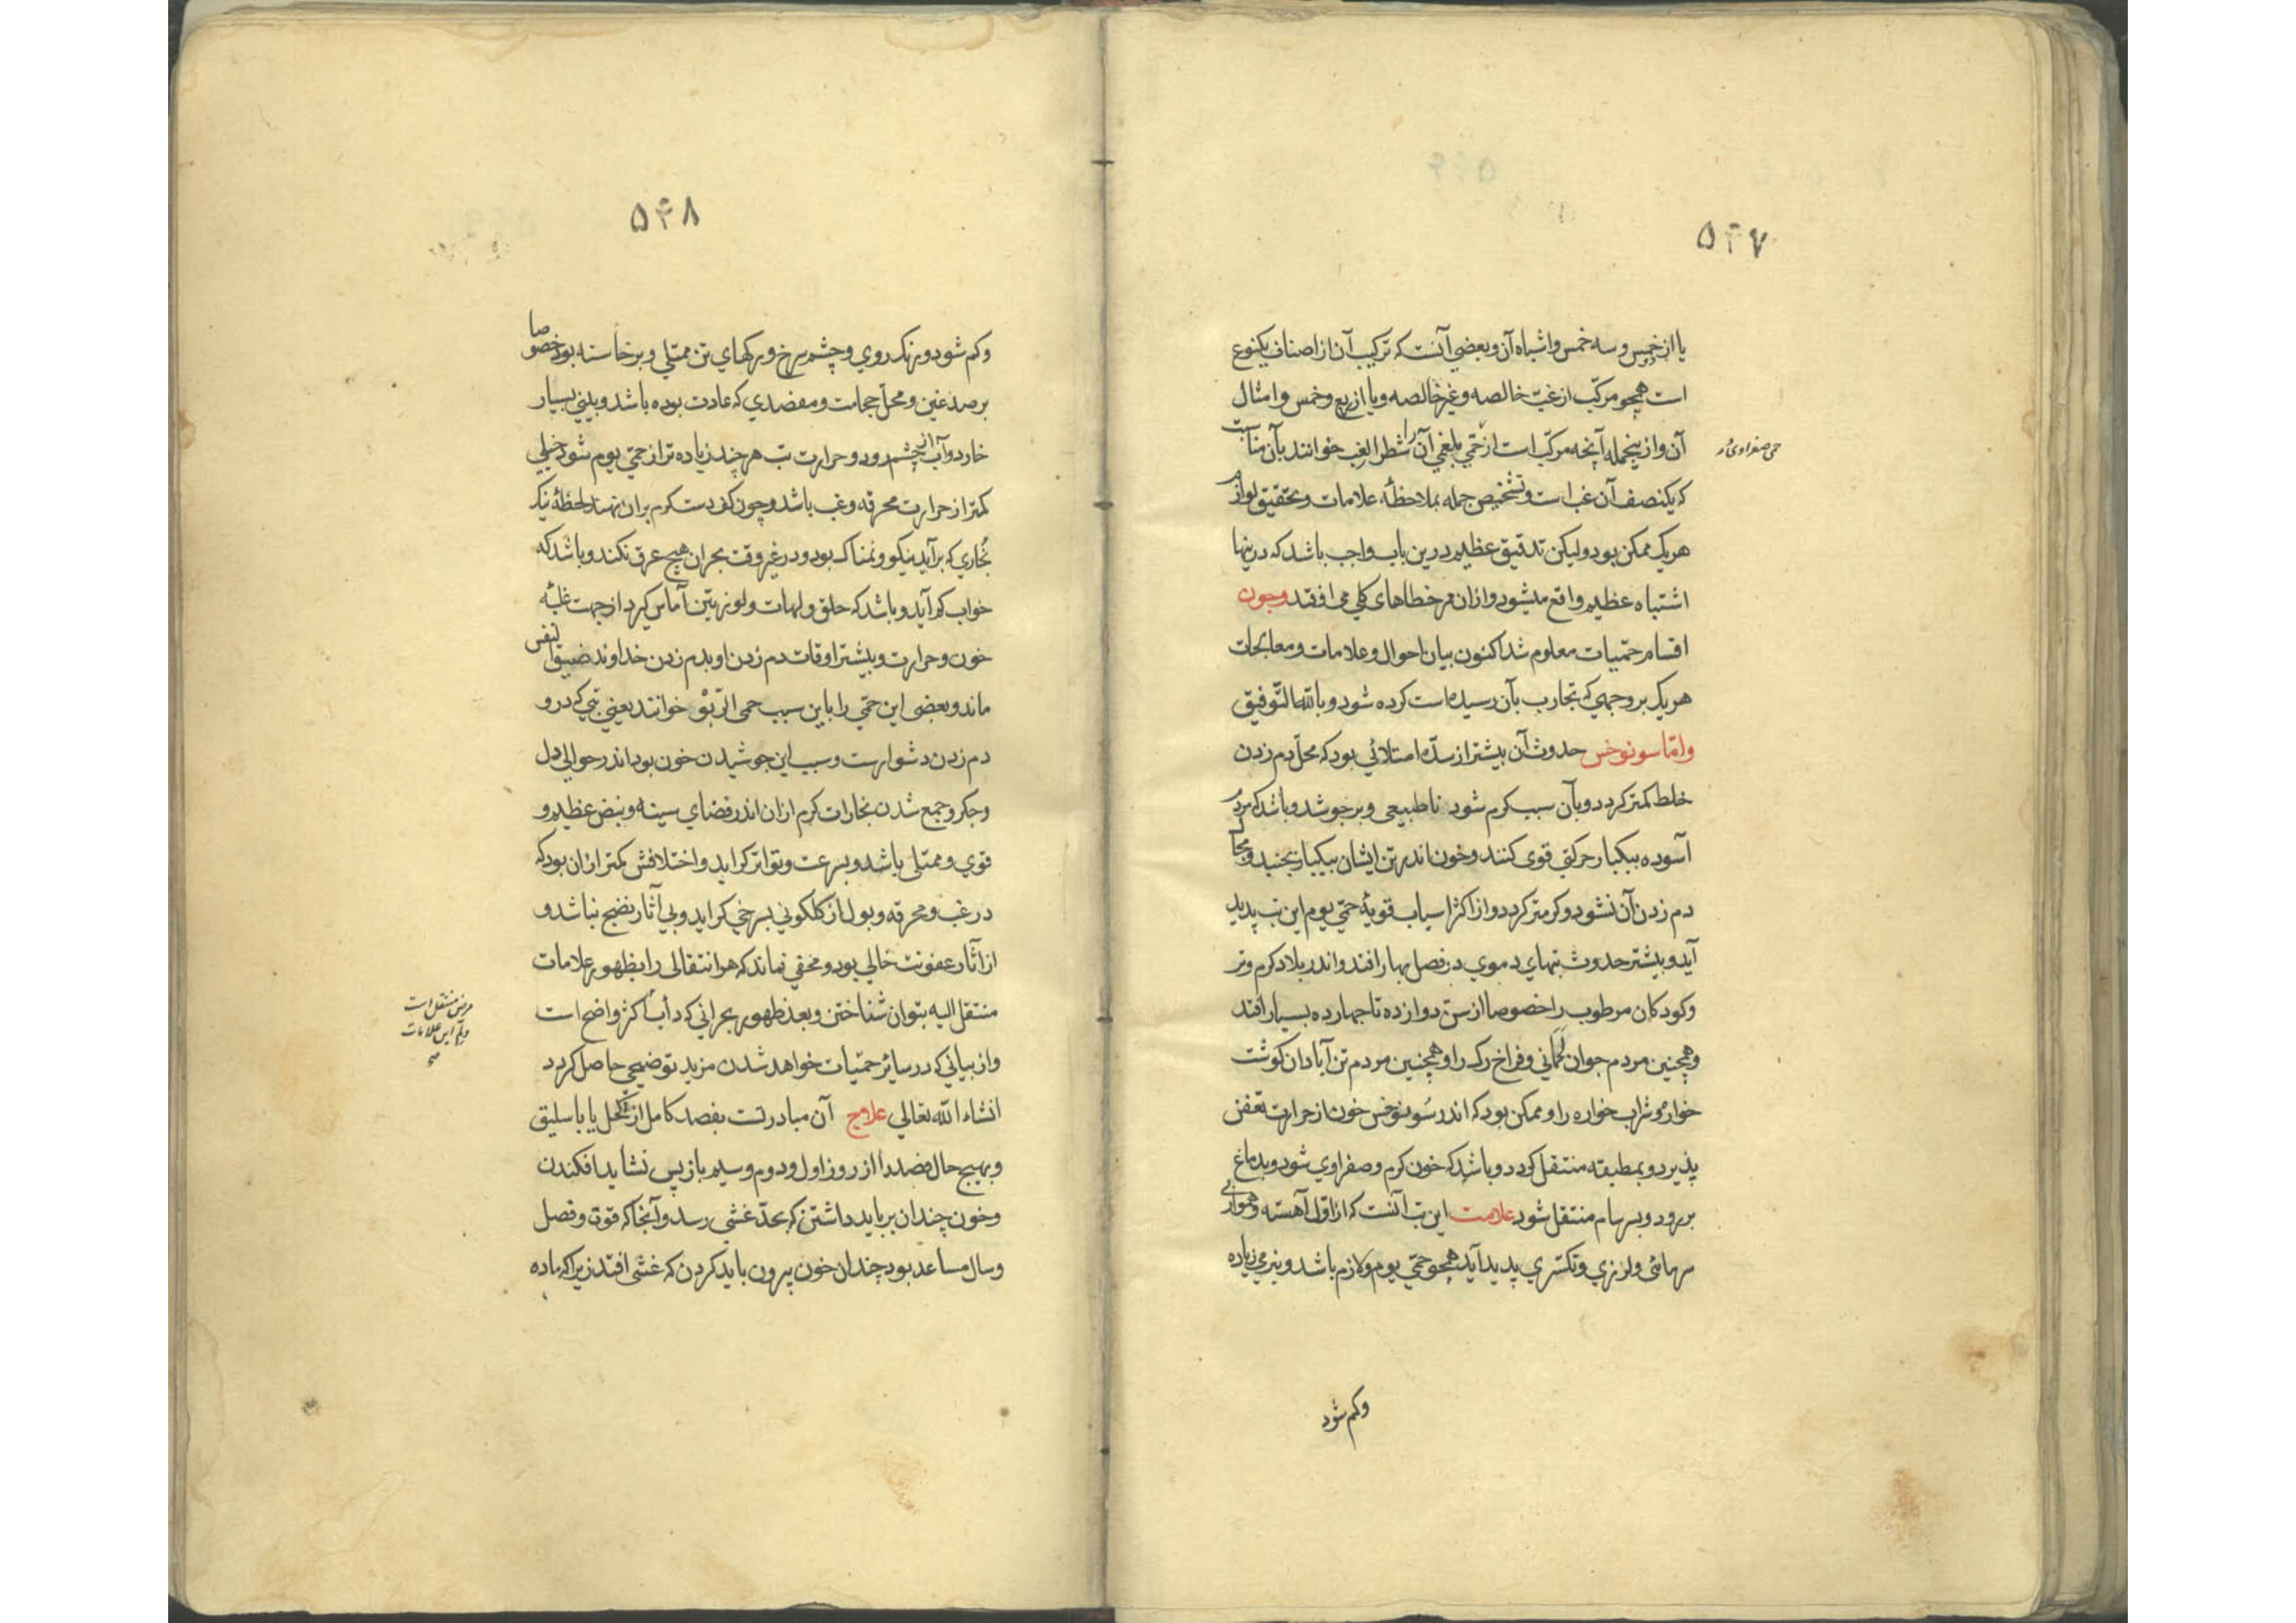 ۵۴۷
یا از خمس و سه خمس و اشباه آن و بعضی آنست که ترکیب آن از اصناف یکنوع
است همچو مرکّب از غبّ خالصه و غیر خالصه و یا از ربع و خمس و امثال
آن و از ینجمله آنچه مرکّب است از حمّی بلغمی آن را شطر الغب خوانند بآن مناسبت
حمی صفراوی و
که یکنصف آن غب است و تشخیص جمله بملاحظهٔ علامات و تحقیق لوازم
هر یک ممکن بود ولیکن تدقیق عظیم درین باب واجب باشد که درینها
اشتباه عظیم واقع میشود و ازان مر خطاهای کلی می افتد و چون
اقسام حمّیات معلوم شد اکنون بیان احوال و علامات و معالجات
هر یک بر وجهی که تجارب بآن رسیده است کرده شود و بالله التّوفیق
و امّا سونوخس حدوث آن بیشتر از سدّه امتلائی بود که محلّ دم زدن
خلط کمتر کردد و بآن سبب کرم شود ناطبیعی و برجوشد و باشد که مردم
آسوده بیکبار حرکتی قوی کنند و خون اندر تن ایشان بیکبار بجنبد و مجال
دم زدن آن نشود و کرمتر کردد و از اکثر اسباب قویهٔ حمّی یوم این تب پدید
آید و بیشتر حدوث تبهای دموی در فصل بهار افتد و اندر بلاد کرم و تر
و کودکان مرطوب را خصوصا از سن دوازده تا چهارده بسیار افتد
و همچنین مردم جوان لحمانی و فراخ رک را و همچنین مردم تن آبادان کوشت
خواره و شراب خواره را و ممکن بود که اندر سونوخس خون از حرارت تعفن
پذیرد و بمطبقه منتقل کردد و باشد که خون کرم و صفراوی شود و بدماغ
بر رود و بسرسام منتقل شود علامت این تب آنست که از اوّل آهسته و هموار بی
سرمائی و لرزی و تکسّری پدید آید همچو حمّی یوم و لازم باشد و بنرمی زیاده
و کم شود
۵۴۸
و کم شود و رنک روی و چشم سرخ و رکهای تن ممتلی و برخاسته بود خصوصا
بر صدغین و محلّ حجامت و مفصدی که عادت بوده باشد و بینی بسیار
خارد و آب از چشم رود و حرارت تب هر چند زیاده تر از حمّی یوم شود خیلی
کمتر از حرارت محرقه و غب باشد و چون کف دست کرم بران نهند لحظهٔ نیک
بخاری که برآید نیکو و نمناک بود و در غیر وقت بحران هیچ عرق نکند و باشد که
خواب کم آید و باشد که حلق و لهات و لوزتین آماس کیرد از جهت غلبهٔ
خون و حرارت و بیشتر اوقات دم زدن او بدم زدن خداوند ضیق النفس
ماند و بعضی این حمّی را باین سبب حمی الرّبو خوانند یعنی تبی که در و
دم زدن دشوارست و سبب این جوشیدن خون بود اندر حوالی دل
و جکر و جمع شدن بخارات کرم ازان اندر فضای سینه و نبض عظیم و
قوی و ممتلی باشد و بسرعت و تواتر کراید و اختلافش کمتر ازان بود که
در غب و محرقه و بول از کلکونی بسرخی کراید و بی آثار نضج نباشد و
از آثار عفونت خالی بود و مخفی نماند که هر انتقالی را بظهور علامات
منتقل الیه بتوان شناختن و بعد ظهور بحرانی که دأب اکثر واضح است
مرض منتقل است
این علامات
و از بیانی که در سائر حمّیات خواهد شدن مزید توضیحی حاصل کردد
انشاء الله تعالی علاج آن مبادرتست بفصد کامل از اکحل یا باسلیق
و بهیچ حال فصد را از روز اول و دوم و سیم بازپس نشاید افکندن
و خون چندان برباید داشتن که بحدّ غشی رسد و آنجا که قوت و فصل
و سال مساعد بود چندان خون بیرون باید کردن که غشی افتد زیرا که ماده